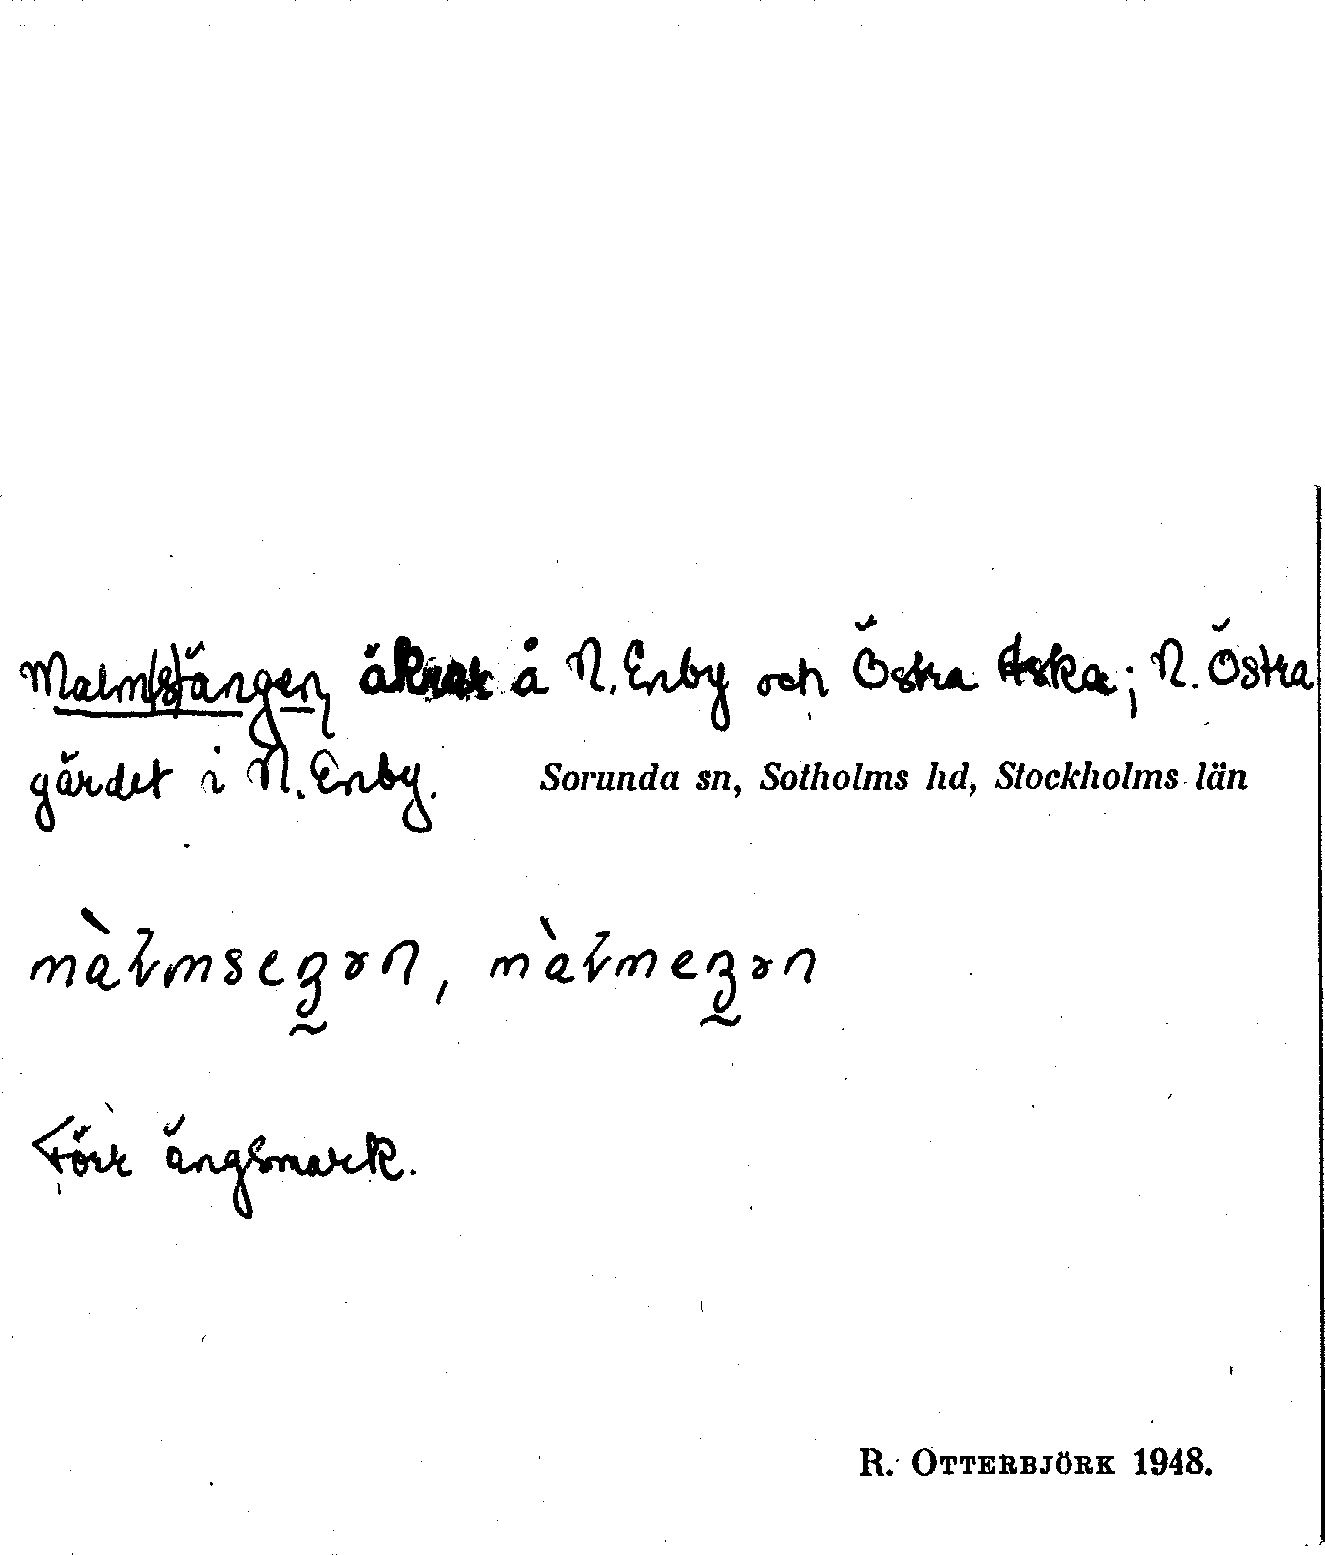 Malm(s)ängen, åkrar å N. Enby och Östra Aska; N. Östra
gärdet i N. Enby. Sorunda sn, Sotholms hd, Stockholms län
Förr ängsmark.
R. OTTERBJÖRK 1948.